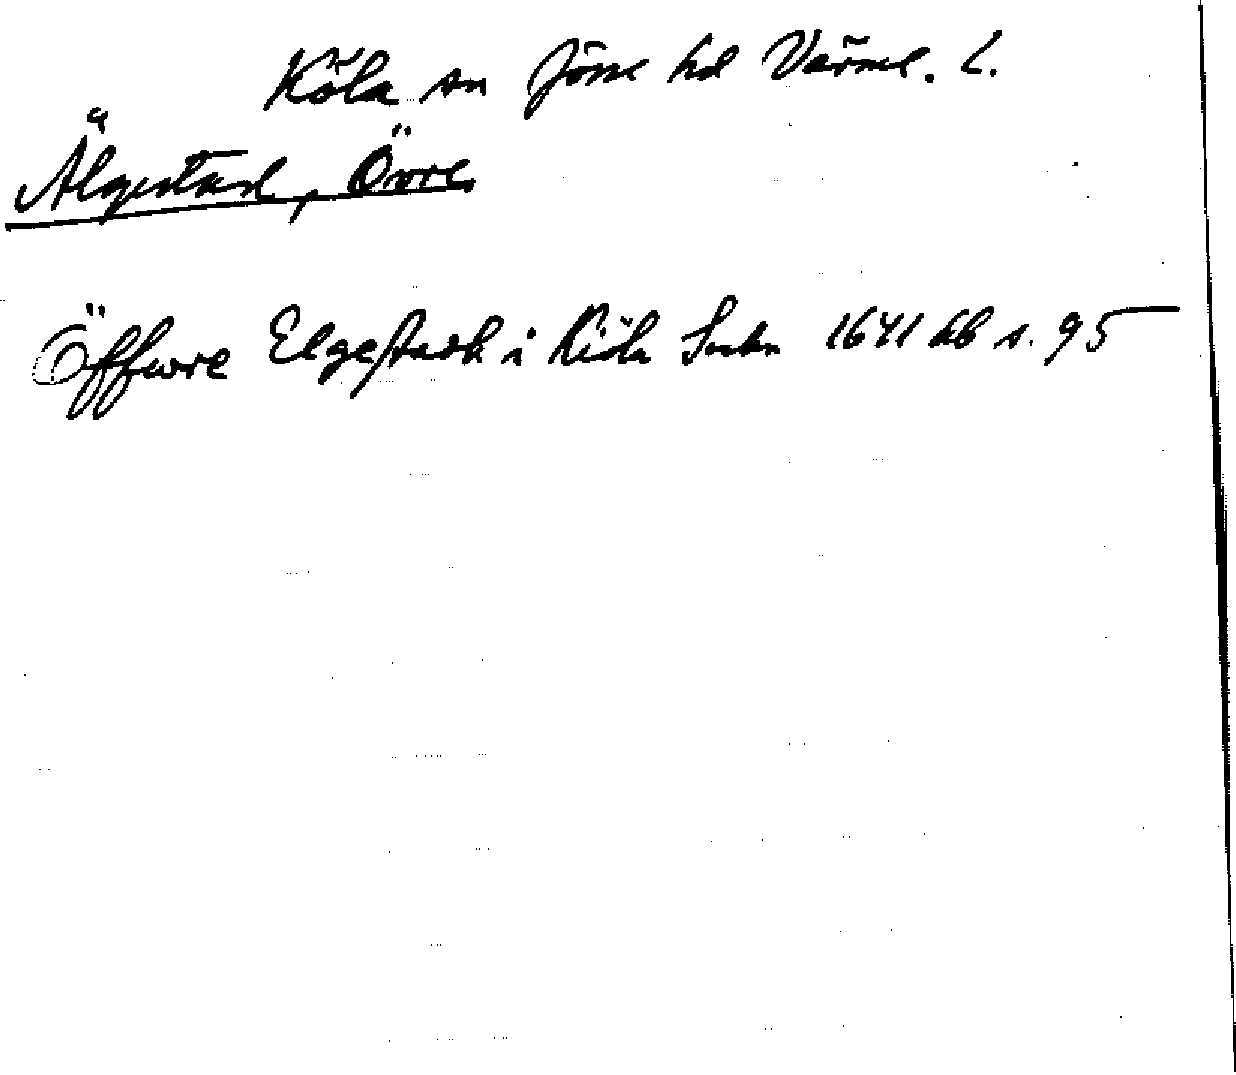 Köla sn Jösse hd Värml. L.
Älgestad, Övre
Öffwre Elgestadh i Kiöla Sockn 1641 kb s. 95